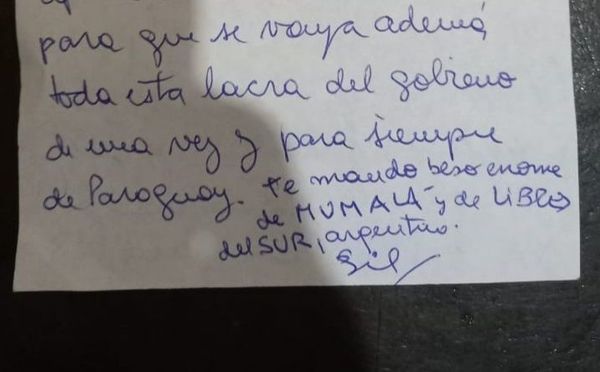 para que se vaya ademá
toda esta lacra del gobierno
de una vez y para siempre
de Paraguay. te mando beso enorme
de MUMALÁ y de LIBRES
del SUR, argentino.
Gil